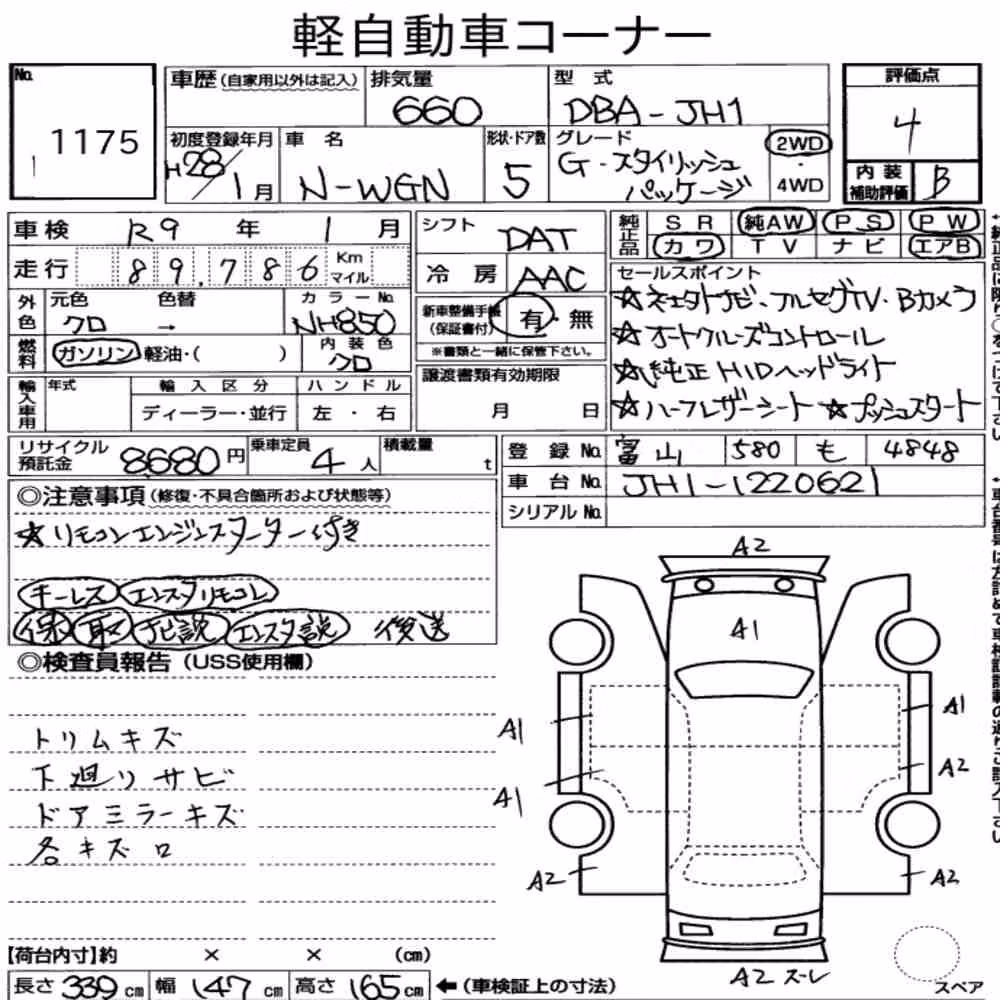 軽自動車コーナー
No. 1175
車歴(自家用以外は記入)
排気量 660
型式 DBA-JH1
評価点 4
初度登録年月 H28/1月
車名 N-WGN
形状・ドア数 5
グレード G・スタイリッシュパッケージ
2WD・4WD
内装補助評価 B
車検 R9年1月
走行 89,786 Kmマイル
シフト DAT
冷房 AAC
純正品 SR 純AW PS PW
カワ TV ナビ エアB
外色 元色 クロ 色替 → カラーNo. NH850
燃料 ガソリン 軽油・( ) 内装色 クロ
新車整備手帳(保証書付) 有・無
※書類と一緒に保管下さい。
セールスポイント
☆ネュタトナビ・フルセグTV・Bカメラ
☆オートクルーズコントロール
☆純正HIDヘッドライト
☆ハーフレザーシート ☆プッシュスタート
輸入車用 年式 輸入区分 ハンドル
ディーラー・並行 左・右
譲渡書類有効期限
月 日
リサイクル預託金 8680円
乗車定員 4人
積載量 t
登録No. 富山 580 も 4848
車台No. JH1-1220621
シリアルNo.
◎注意事項(修復・不具合箇所および状態等)
☆リモコンエンジンスターター付き
キーレス エンスタリモコン
保 取 ナビ説 エンスタ説 後送
◎検査員報告(USS使用欄)
トリムキズ
下廻りサビ
ドアミラーキズ
各キズロ
A2
A1
A1
A1
A1
A2
A2
A2
A2スレ
スペア
【荷台内寸】約 × × (cm)
長さ 339cm 幅 147cm 高さ 165cm ←(車検証上の寸法)